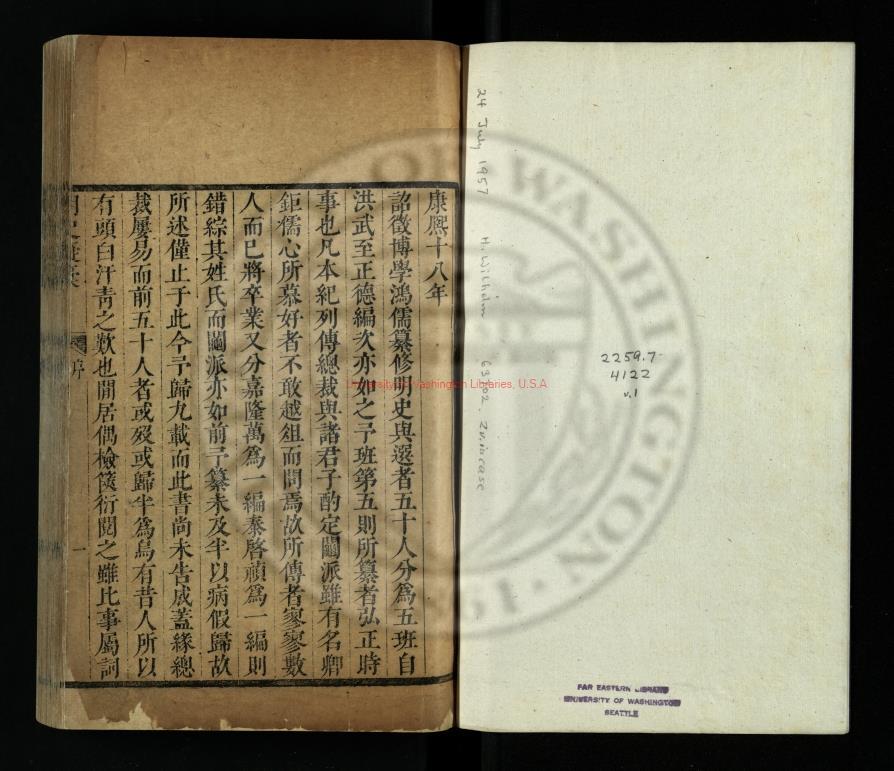 康熙十八年
詔徵博學鴻儒纂修明史與選者五十人分為五班自
洪武至正德編次亦如之予班第五則所纂者弘正時
事也凡本紀列傳總裁與諸君子酌定鬮派雖有名卿
鉅儒心所慕好者不敢越俎而問焉故所傳者寥寥數
人而已將卒業又分嘉隆萬為一編泰啓禎為一編則
錯綜其姓氏而鬮派亦如前予纂未及半以病假歸故
所述僅止于此今予歸九載而此書尚未告成蓋緣總
裁屢易而前五十人者或歿或歸半為烏有昔人所以
有頭白汗青之歎也閒居偶檢篋衍閱之雖比事屬詞
明史擬稾
序
一
24 July 1957 H. Wilhelm
2259.7
4122
v.1
FAR EASTERN LIBRARY
UNIVERSITY OF WASHINGTON
SEATTLE
University of Washington Libraries, U.S.A
WASHINGTON
1861